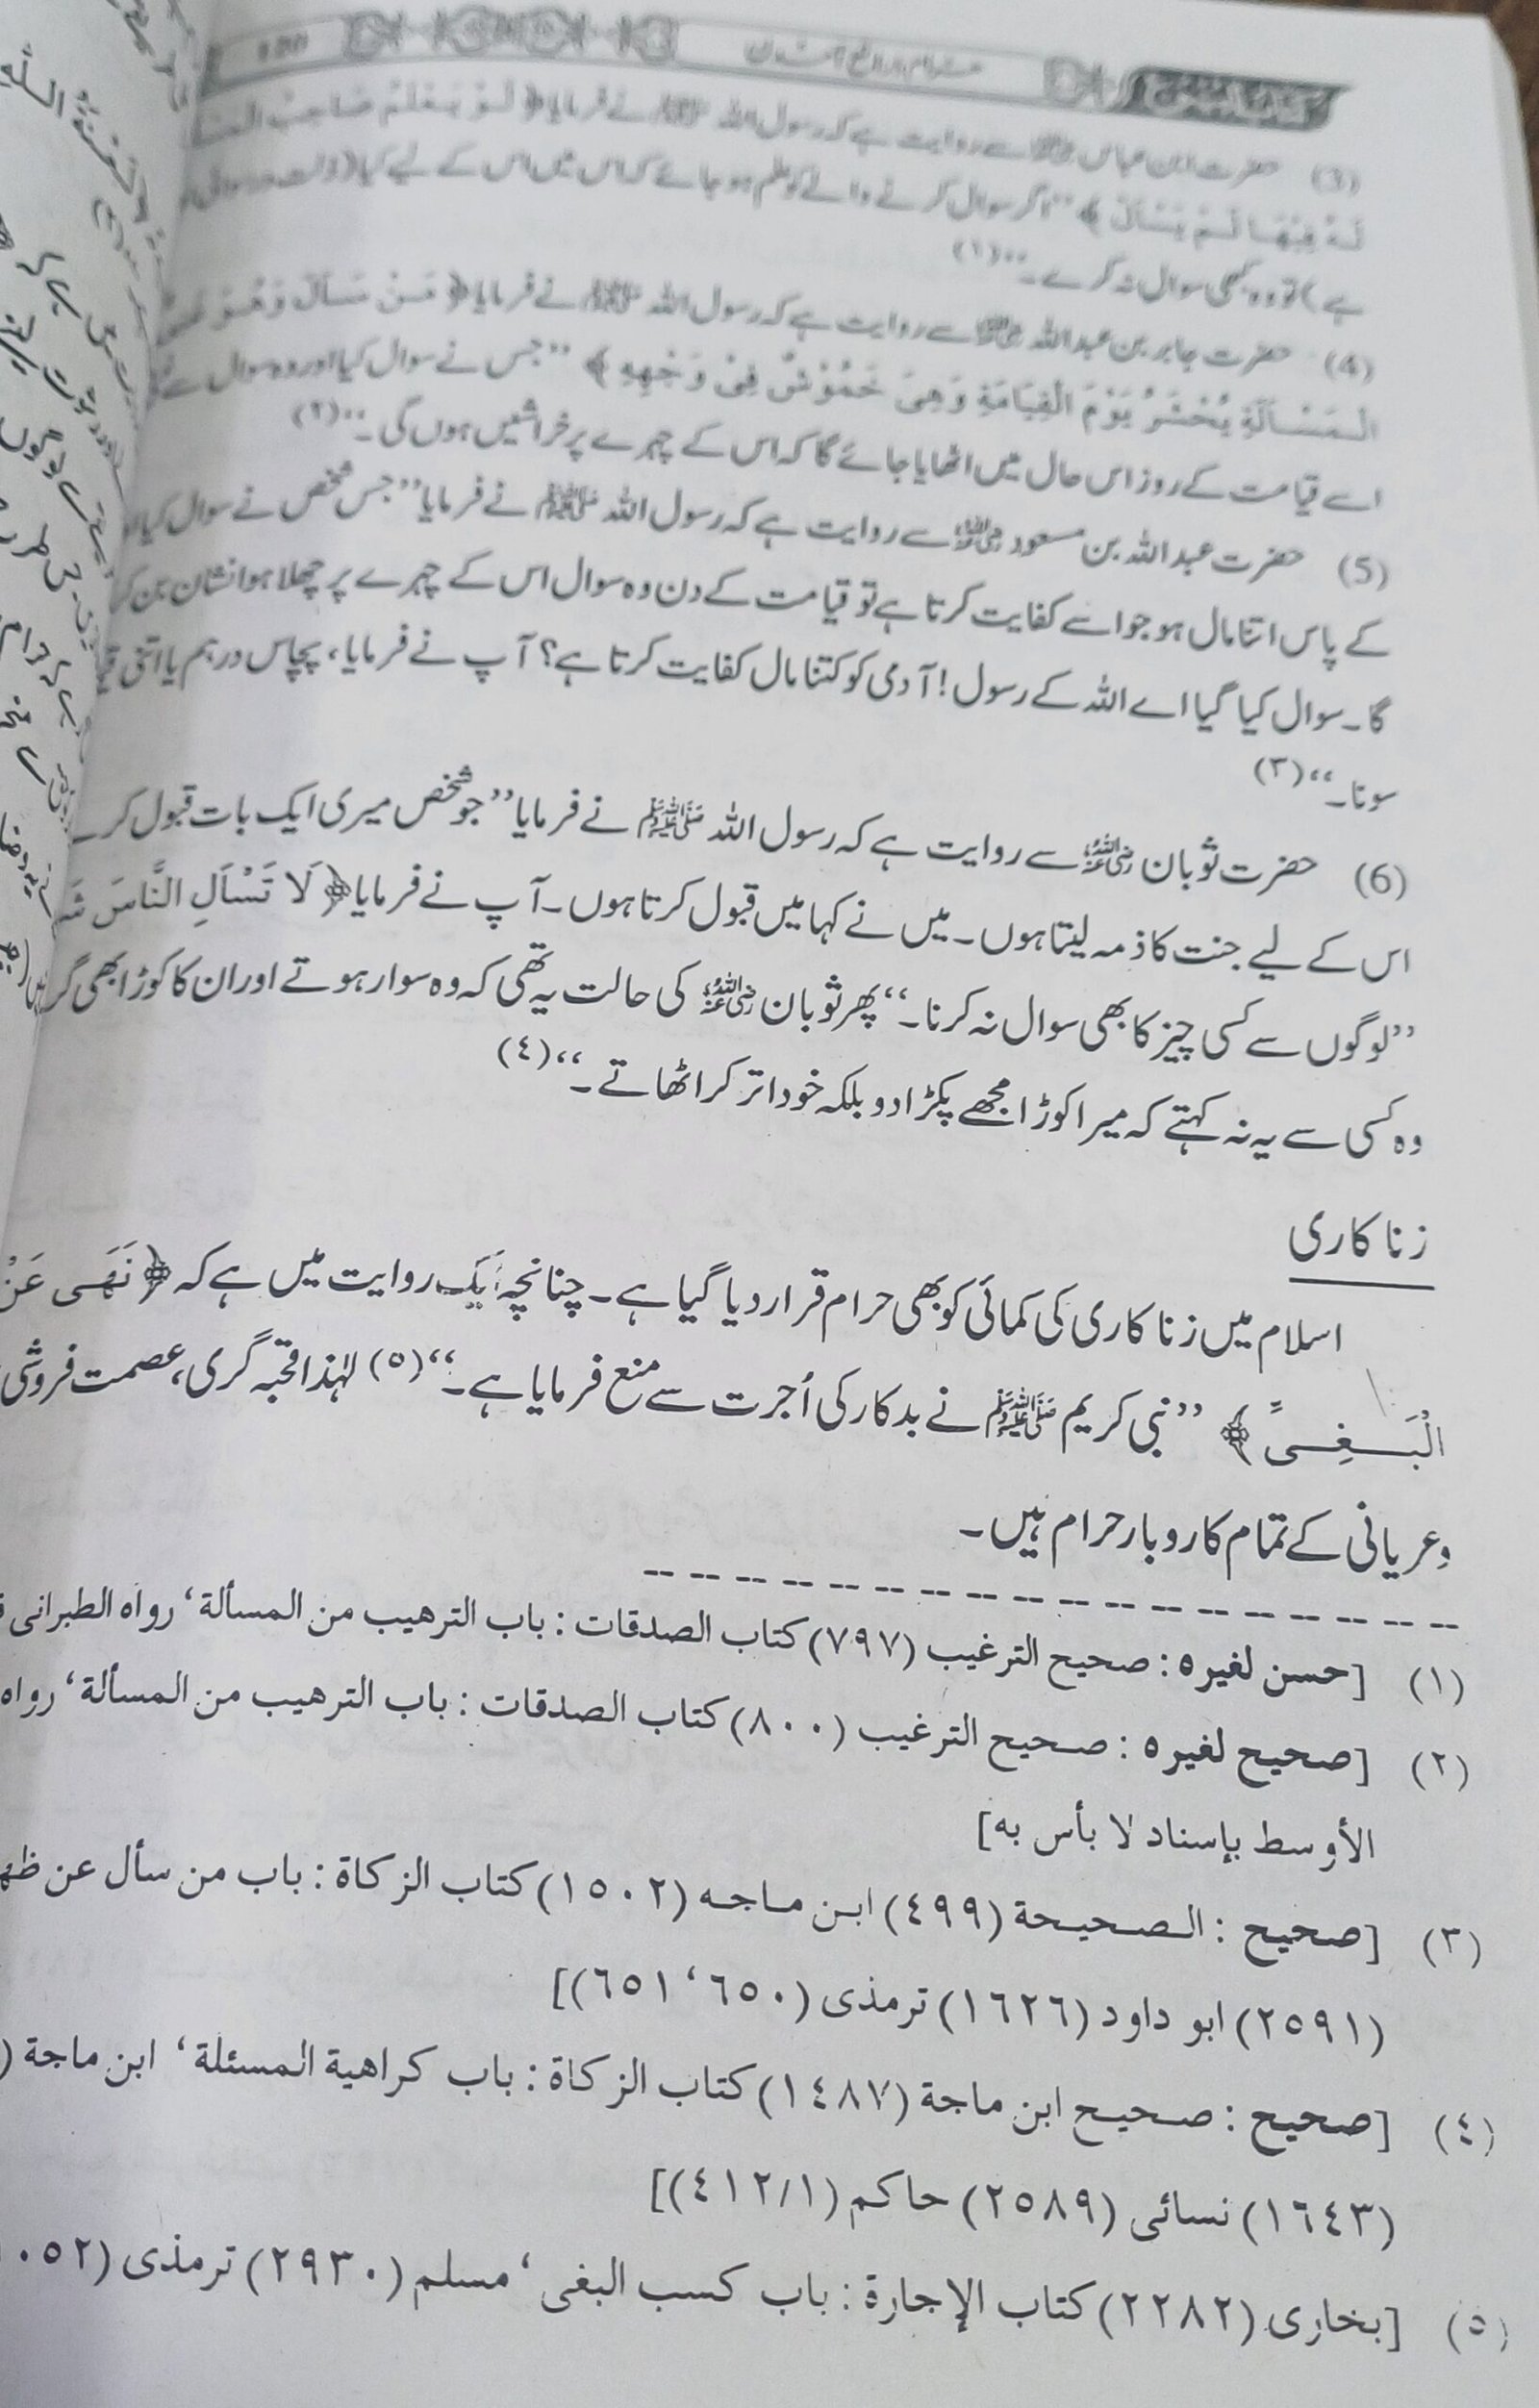 حرام ذرائع آمدن
(3) حضرت ابن عباس رضی اللہ عنہ سے روایت ہے کہ رسول اللہ ﷺ نے فرمایا ﴿ لَوْ يَعْلَمُ صَاحِبُ
لَهُ فِيْهَا لَمْ يَسْأَلْ ﴾ ’’اگر سوال کرنے والے کو علم ہو جائے کہ اس میں اس کے لیے کیا (ذلت و رسوائی
ہے) تو وہ کبھی سوال نہ کرے۔‘‘(١)
(4) حضرت جابر بن عبداللہ رضی اللہ عنہ سے روایت ہے کہ رسول اللہ ﷺ نے فرمایا ﴿ مَنْ سَأَلَ وَهُوَ
الْمَسْأَلَةِ يُحْشَرُ يَوْمَ الْقِيَامَةِ وَهِيَ خَمُوْشٌ فِيْ وَجْهِهِ ﴾ ’’جس نے سوال کیا اور وہ سوال سے
اسے قیامت کے روز اس حال میں اٹھایا جائے گا کہ اس کے چہرے پر خراشیں ہوں گی۔‘‘(٢)
(5) حضرت عبداللہ بن مسعود رضی اللہ عنہ سے روایت ہے کہ رسول اللہ ﷺ نے فرمایا ’’جس شخص نے سوال کیا
کے پاس اتنا مال ہو جو اسے کفایت کرتا ہے تو قیامت کے دن وہ سوال اس کے چہرے پر چھلا ہوا نشان بن کر
گا۔ سوال کیا گیا اے اللہ کے رسول! آدمی کو کتنا مال کفایت کرتا ہے؟ آپ نے فرمایا، پچاس درہم یا اتنی
سونا۔‘‘(٣)
(6) حضرت ثوبان رضی اللہ عنہ سے روایت ہے کہ رسول اللہ ﷺ نے فرمایا ’’جو شخص میری ایک بات قبول کرے
اس کے لیے جنت کا ذمہ لیتا ہوں۔ میں نے کہا میں قبول کرتا ہوں۔ آپ نے فرمایا ﴿ لَا تَسْأَلِ النَّاسَ
’’لوگوں سے کسی چیز کا بھی سوال نہ کرنا۔‘‘ پھر ثوبان رضی اللہ عنہ کی حالت یہ تھی کہ وہ سوار ہوتے اور ان کا کوڑا بھی گر
وہ کسی سے یہ نہ کہتے کہ میرا کوڑا مجھے پکڑا دو بلکہ خود اتر کر اٹھاتے۔‘‘(٤)
زنا کاری
اسلام میں زنا کاری کی کمائی کو بھی حرام قرار دیا گیا ہے۔ چنانچہ ایک روایت میں ہے کہ ﴿ نَهَى عَنْ
الْبَغِيِّ ﴾ ’’نبی کریم ﷺ نے بدکار کی اُجرت سے منع فرمایا ہے۔‘‘(٥) لہٰذا قحبہ گری، عصمت فروشی
وعریانی کے تمام کاروبار حرام ہیں۔
(١) [حسن لغيره : صحيح الترغيب (٧٩٧) كتاب الصدقات : باب الترهيب من المسألة ، رواه الطبرانى
(٢) [صحيح لغيره : صحيح الترغيب (٨٠٠) كتاب الصدقات : باب الترهيب من المسألة ، رواه
الأوسط بإسناد لا بأس به]
(٣) [صحيح : الصحيحة (٤٩٩) ابن ماجه (١٥٠٢) كتاب الزكاة : باب من سأل عن
(٢٥٩١) ابو داود (١٦٢٦) ترمذى (٦٥٠ ، ٦٥١)]
(٤) [صحيح : صحيح ابن ماجة (١٤٨٧) كتاب الزكاة : باب كراهية المسئلة ، ابن ماجة (
(١٦٤٣) نسائى (٢٥٨٩) حاكم (٤١٢/١)]
(٥) [بخارى (٢٢٨٢) كتاب الإجارة : باب كسب البغى ، مسلم (٢٩٣٠) ترمذى (